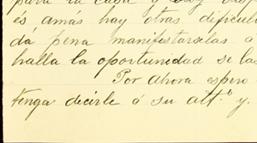 para la casa
és amás hay otras dificul
dá pena manifestarselas á
halla la oportunidad se las
Por Ahora espero
tenga decirle ó su att.º y.